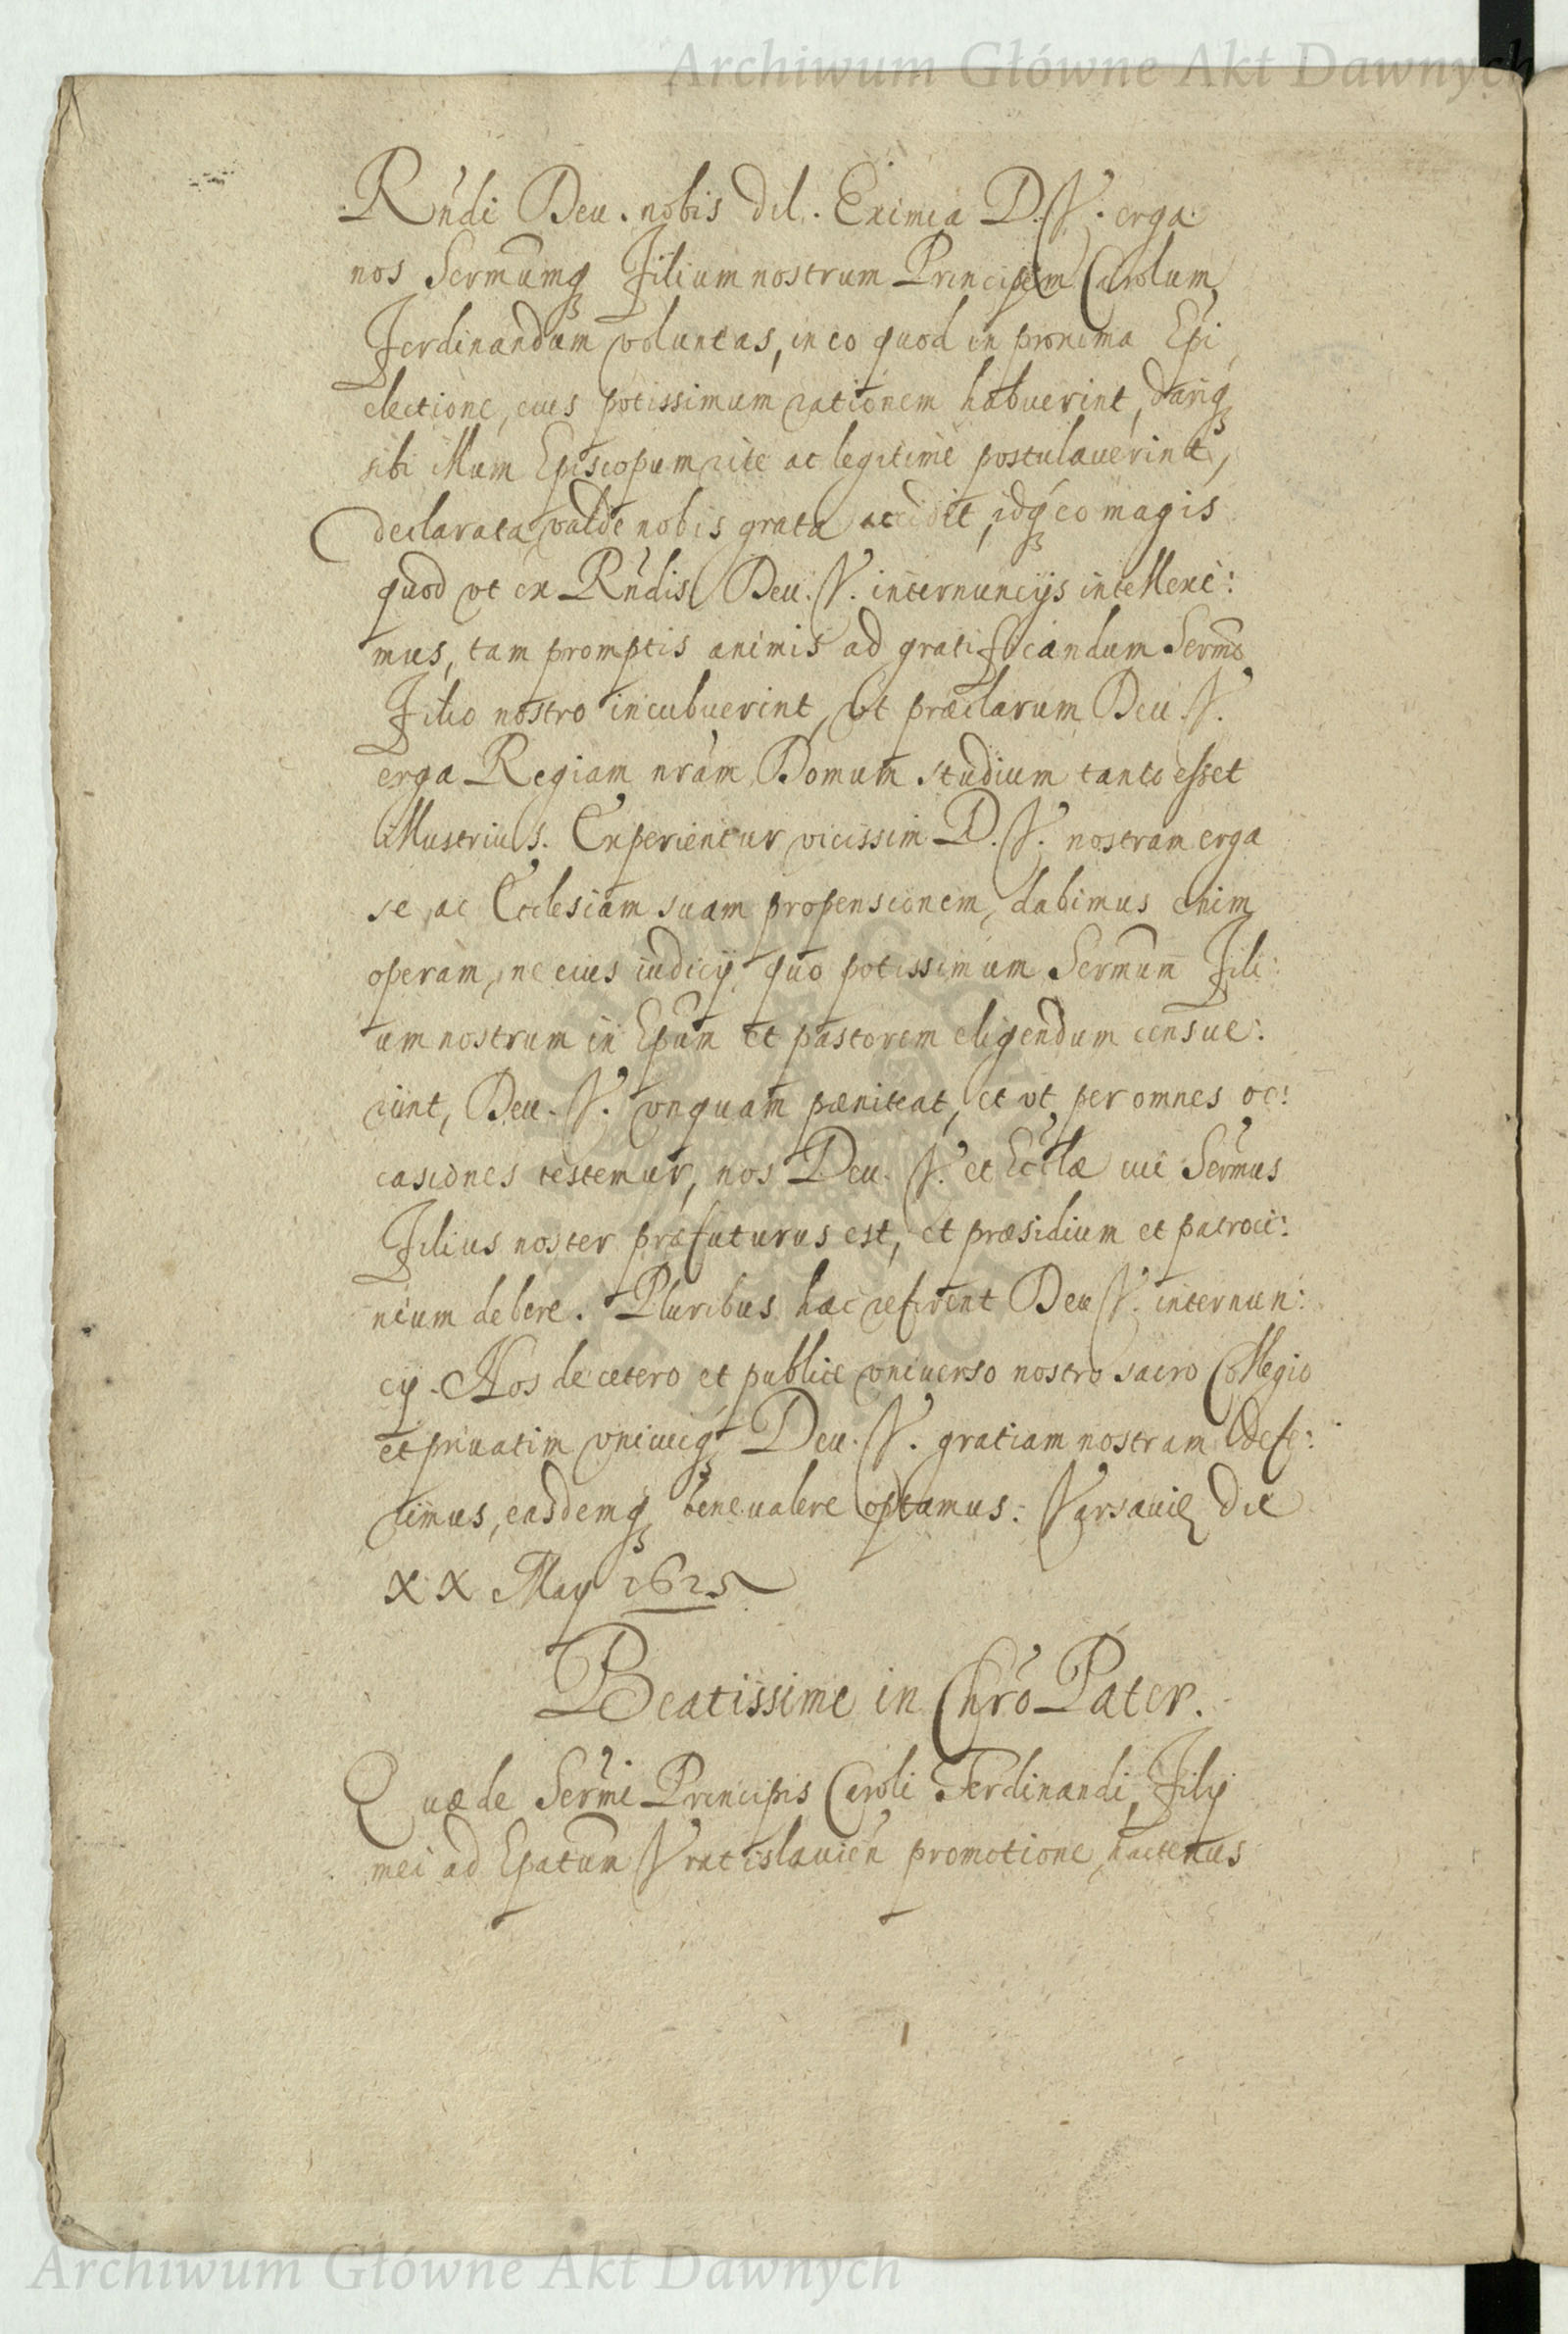 Archiwum Główne Akt Dawnych
Rndi Deu. nobis dil. Eximia D. V. erga
nos Sermumq Filium nostrum Principem Carolum
Ferdinandum voluntas, in eo quod in proxima Epi
electione, eius potissimum rationem habuerint,
sibi illum Episcopum rite ac legitime postulauerint,
declarata valde nobis grata accidit, idq eo magis
quod vt ex Rndis Deu. V. internuncijs intellexi:
mus, tam promptis animis ad gratificandum Sermo
Filio nostro incubuerint, vt præclarum Deu. V.
erga Regiam nram Domum studium tanto esset
illustrius. Experientur vicissim D. V. nostram erga
se, ac Ecclesiam suam propensionem, dabimus enim
operam, ne eius iudicij quo potissimum Sermum Fili:
um nostrum in Epum et pastorem eligendum censue:
rint, Deu. V. vnquam pæniteat, et vt per omnes oc:
casiones testemur, nos Deu. V. et Ecclæ cui Sermus
Filius noster præfuturus est, et præsidium et patroci:
nium debere. Pluribus hæc referent Deu V. internun:
cij. Nos de cetero et publice vniuerso nostro sacro Collegio
et priuatim vnicuiq Deu. V. gratiam nostram defe:
rimus, easdemq bene valere optamus. Varsauiæ die
XX May 1625
Beatissime in Chro Pater.
Quæ de Sermi Principis Caroli Ferdinandi, Filij
mei ad Epatum Vratislauien promotione hactenus
Archiwum Główne Akt Dawnych